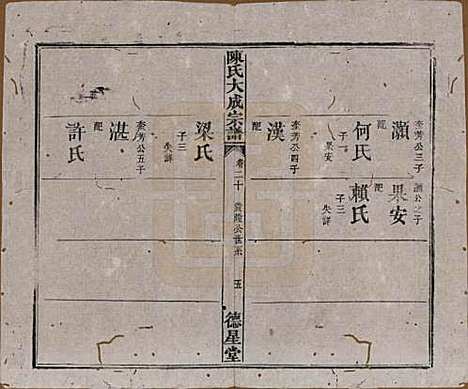 灝
李芳公三子
配
何氏
子一
果安
漢
李芳公四子
配
果安
灝公之子
配
賴氏
子三
失詳
陳氏大成宗譜
卷二十
黃陂公世系
五
德星堂
梁氏
子三
失詳
湛
李芳公五子
配
許氏